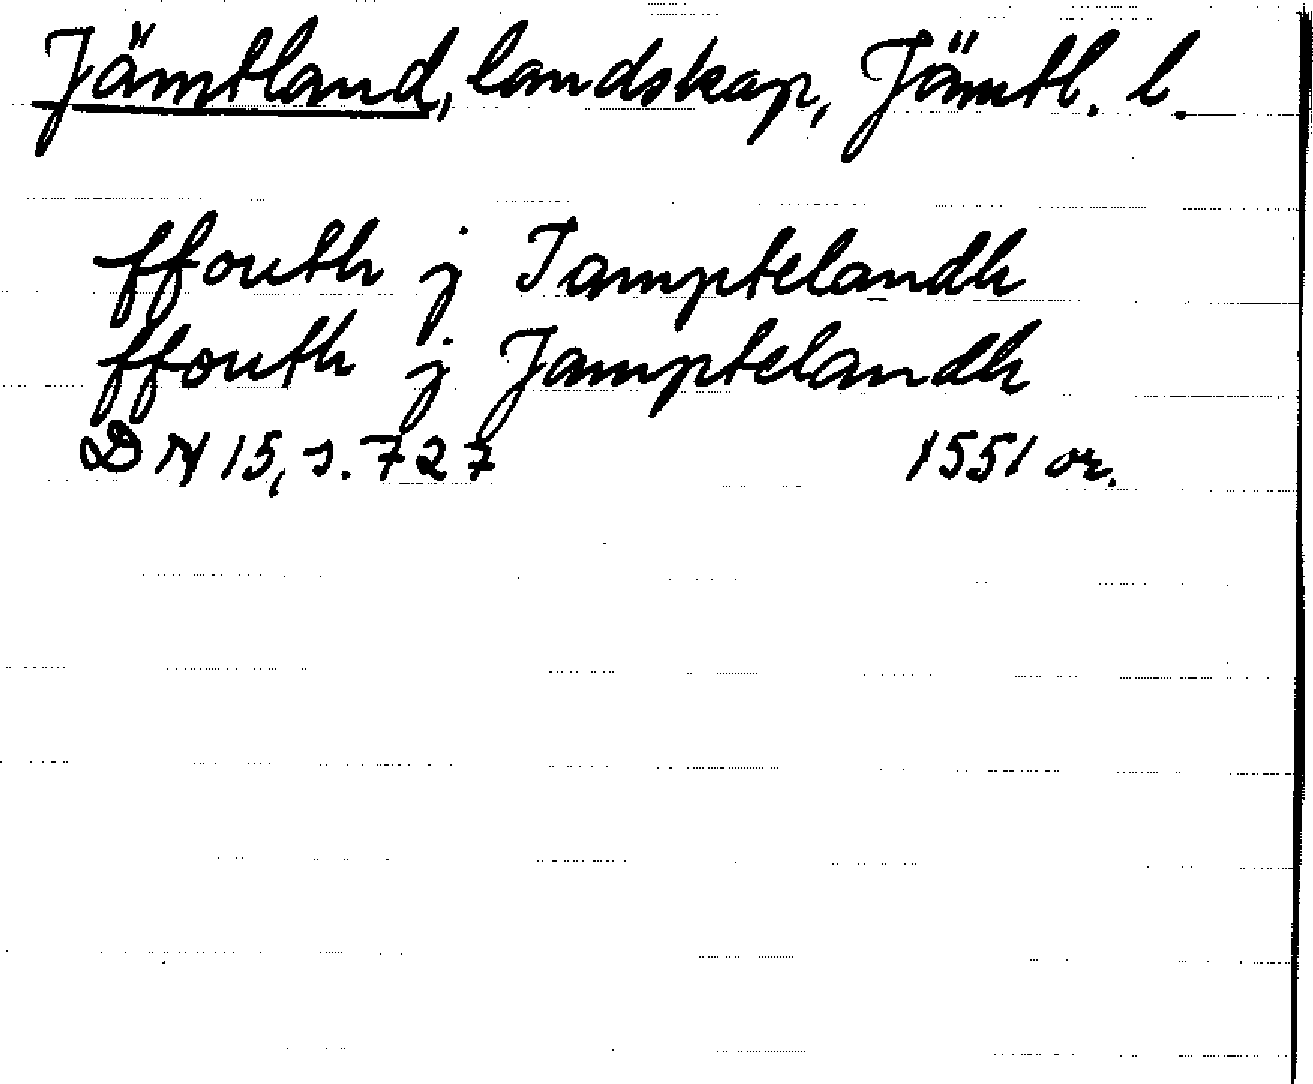 Jämtland, landskap, Jämtl. l.
ffouth j Iamptelandh
ffouth j Jamptelandh
DN 15, s. 727 1551 or.